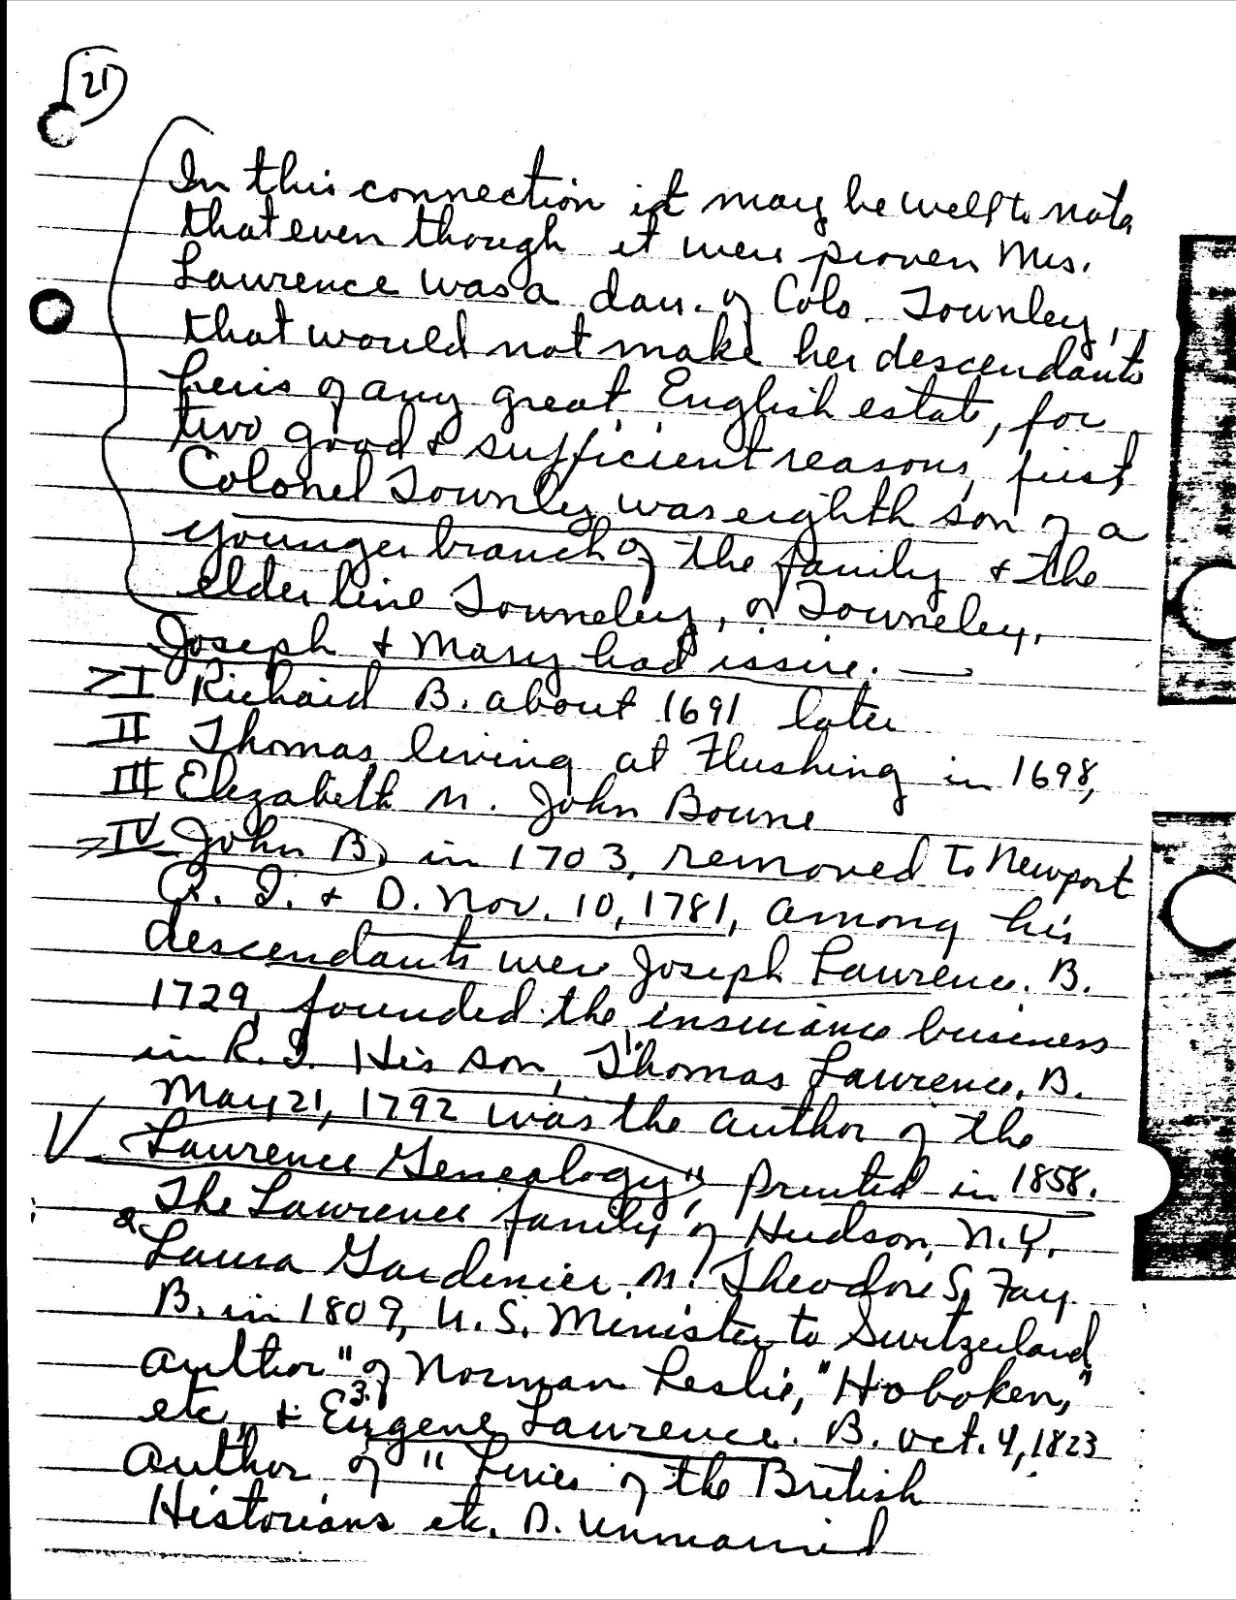 21
In this connection it may be well to note
that even though it were proven Mrs.
Lawrence was a dau. of Colo. Townley,
that would not make her descendants
heirs of any great English estate, for
two good & sufficient reasons, first
Colonel Townley was eighth son of a
younger branch of the family & the
elder line Towneley, of Towneley.
Joseph & Mary had issue. —
>I Richard B. about 1691 later
II Thomas living at Flushing in 1698,
III Elizabeth M. John Bowne
>IV John B. in 1703, removed To Newport
R. I. & D. Nov. 10, 1781, among his
descendants were Joseph Lawrence. B.
1729, founded the insurance business
in R. I. His son, Thomas Lawrence, B.
May 21, 1792 was the author of the
V Lawrence Genealogy", printed in 1858.
The Lawrence family of Hudson, N.Y.
2 Laura Gardinier. M. Theodore S. Fay
B. in 1809, U. S. Minister to Switzerland
author " of Norman Leslie," Hoboken,"
etc, & 3. Eugene Lawrence. B. Oct. 4, 1823
author of " Lives of the British
Historians etc. D. Unmarried